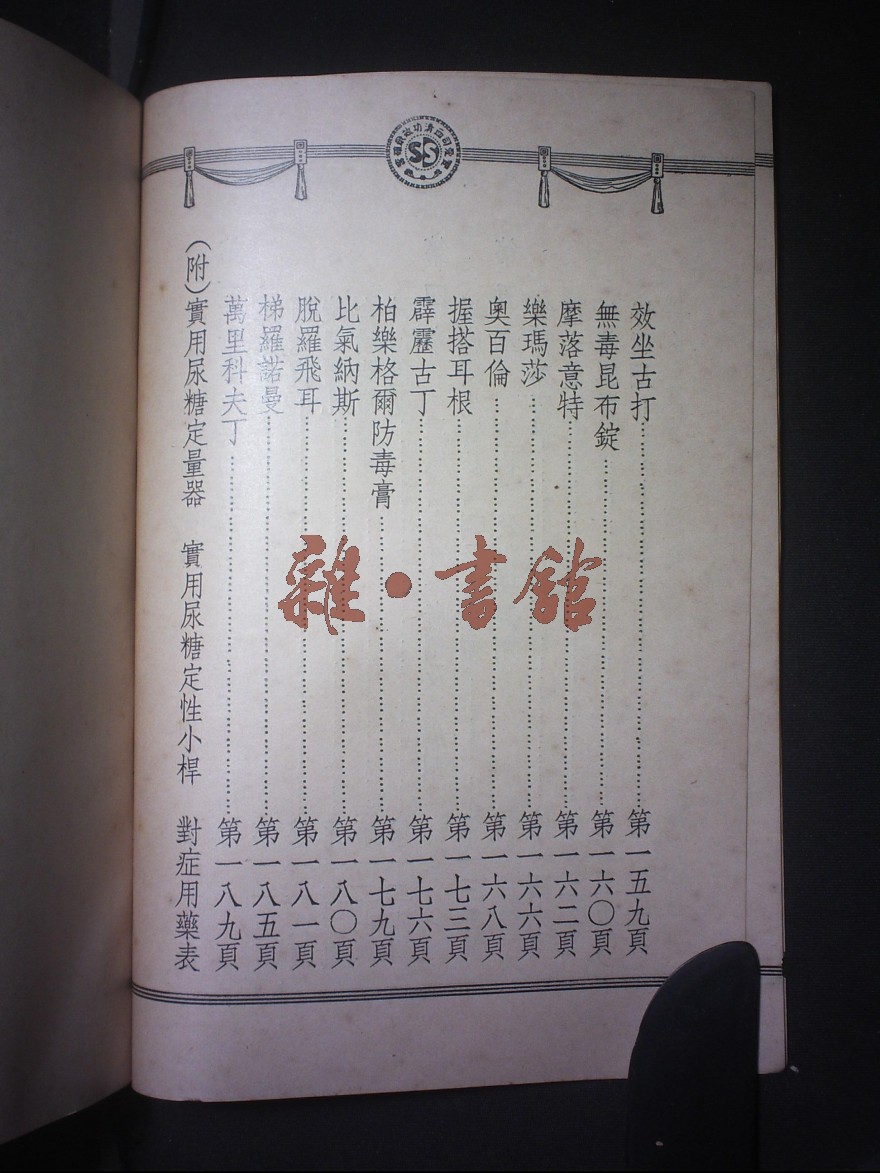 效坐古打……第一五九頁
無毒昆布錠……第一六〇頁
摩落意特……第一六二頁
樂瑪莎……第一六六頁
奧百倫……第一六八頁
握搭耳根……第一七三頁
霹靂古丁……第一七六頁
柏樂格爾防毒膏……第一七九頁
比氣納斯……第一八〇頁
脫羅飛耳……第一八一頁
梯羅諾曼……第一八五頁
萬里科夫丁……第一八九頁
（附）實用尿糖定量器 實用尿糖定性小桿 對症用藥表
SS
雜·書館